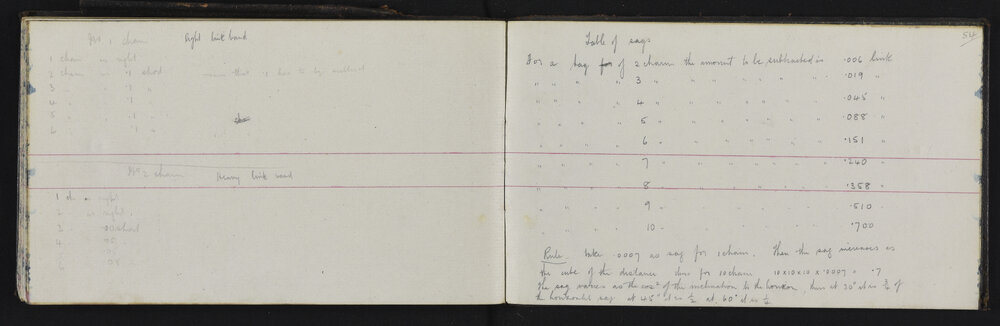 No 1 chain Light link band
1 chain is right
2 chain is .1 short mean that .1 has to be
3 " " .1 "
4 " " .1
5 " " .1 "
6 .1 "
No 2 chain Heavy link band
1 ch is right
2 " is right
3 short
4
5
6
54
Table of sags
For a sag of 2 chains the amount to be subtracted is .006 link
" " " " 3 " " " " " " .019 "
" " " " 4 " " " " " " .045 "
" " " " 5 " " " " " " .088 "
" " " " 6 " " " " " " .151 "
" " " " 7 " " " " " " .240 "
" " " " 8 " " " " " " .358 "
" " " " 9 " " " " " " .510
" " " " 10 " " " " " " .700
Rule. take .0007 as sag for 1 chain. Then the sag increases as
the cube of the distance thus for 10 chain 10x10x10 x .0007 = .7
The sag varies as the cos² of the inclination to the horizon, thus at 30° it is ¾ of
the horizontal sag at 45° it is ½ at 60° it is ¼